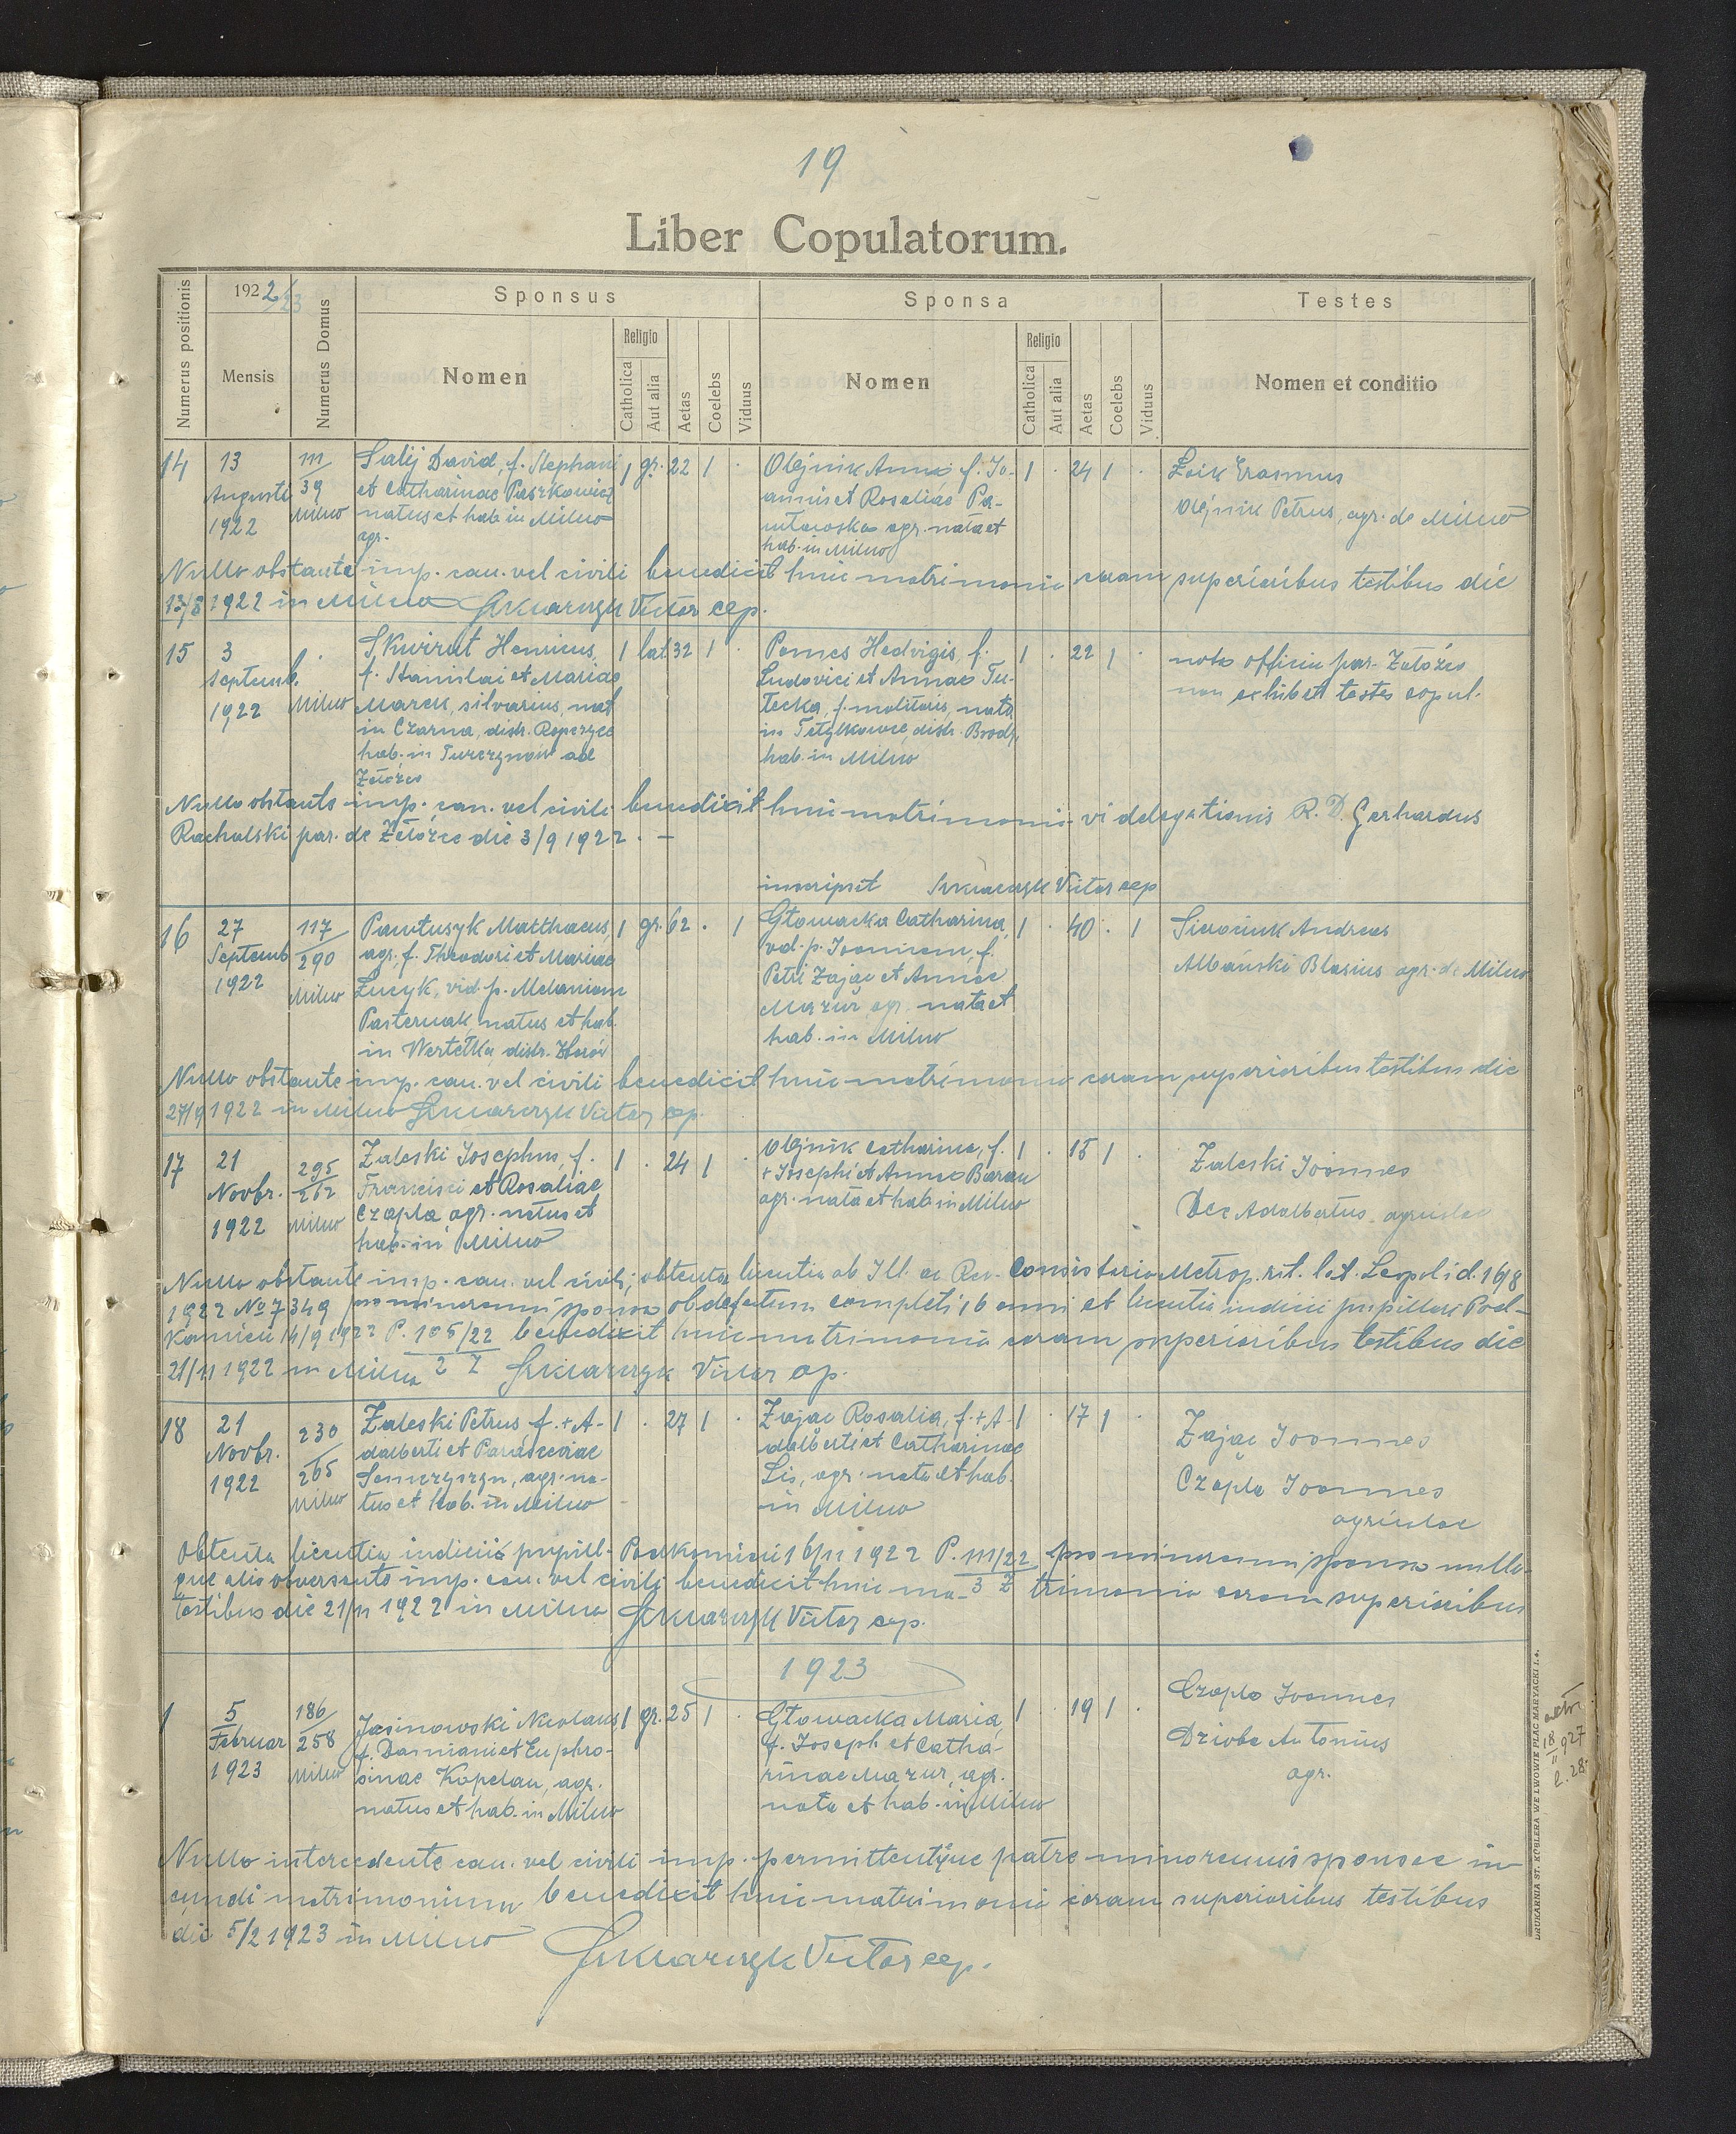 19
Liber Copulatorum.
Numerus positionis
1922/23
Mensis
Numerus Domus
Sponsus
Nomen
Religio
Catholica
Aut alia
Aetas
Coelebs
Viduus
Sponsa
Nomen
Religio
Catholica
Aut alia
Aetas
Coelebs
Viduus
Testes
Nomen et conditio
14
13
Augusti
1922
111/39
Milno
Salij David, f. Stephani
et Catharinae Paszkowicz
natus et hab. in Milno
agr.
1 gr. 22 1 .
Olejnik Anna f. Jo-
annis et Rosaliae Pa-
agr. nata et
hab. in Milno
1 . 24 1 .
Łoik Erasmus
Olejnik Petrus, agr. de Milno
Nullo obstante imp. can. vel civili benedixit huic matrimonio coram superioribus testibus die
13/8 1922 in Milno Szklarczyk Victor cap.
15
3
Septemb.
1922
.
Milno
Skwirut Henricus,
f. Stanislai et Mariae
Marek, silvarius, nat.
in Czarna, distr. Ropczyce
hab. in ad
Załoźce
1 lat. 32 1 .
Pomes Hedvigis, f.
Ludovici et Annae Tu-
tecka, f. molitoris, nata
in Tetylkowce, distr. Brody,
hab. in Milno
1 . 22 1 .
nota officii par. Załoźce
non exhibet testes copul.
Nullo obstante imp. can. vel civili benedixit huic matrimonio vi delegationis R. D. Gerhardus
Rachalski par. de Załoźce die 3/9 1922. -
inscripsit Szklarczyk Victor cap
16
27
Septemb
1922
117/290
Milno
Pawlusyk Matthaeus,
agr. f. Theodori et Mariae
Łucyk, vid. p. Melaniam
Pasternak, natus et hab.
in Wertełka distr. Zborów
1 gr. 62 . 1
Głowacka Catharina,
vid. p. Joannem, f.
Petri Zając et Annae
Mazur agr. nata et
hab. in Milno
1 . 40 . 1
Andreas
Albański Blasius agr. de Milno
Nullo obstante imp. can. vel civili benedixit huic matrimonio coram superioribus testibus die
27/9 1922 in Milno Szklarczyk Victor cap.
17
21
Novbr.
1922
295/262
Milno
Zaleski Josephus, f.
Francisci et Rosaliae
Czapla agr. natus et
hab. in Milno
1 . 24 1 .
Olejnik Catharina, f.
+ Josephi et Annae Baran
agr. nata et hab. in Milno
1 . 15 1 .
Zaleski Joannes
Dec Adalbertus agricolae
Nullo obstante imp. can. vel civili; obtenta licentia ab Ill. ac Rev. Consistorio Metrop. rit. lat. Leopoli d. 16/8
1922 No 7349 pro minorenni sponsa ob defectum completi 16 anni et licentia iudicii pupillari Pod-
kamieni 14/9 1922 P. 105/22 benedixit huic matrimonio coram superioribus testibus die
21/11 1922 in Milno 2 Z Szklarczyk Victor cap.
18
21
Novbr.
1922
230/265
Milno
Zaleski Petrus f. + A-
dalberti et Parasceviae
agr. na-
tus et hab. in Milno
1 . 27 1 .
Zając Rosalia, f. + A-
dalberti et Catharinae
Lis, agr. nata et hab.
in Milno
1 . 17 1 .
Zając Joannes
Czapla Joannes
agricolae
Obtenta licentia iudicii pupill. Podkamieni 16/11 1922 P. 111/22 pro minorenni sponsa nullo-
que alio obversante imp. can. vel civili benedixit huic ma- 3 Z trimonio coram superioribus
testibus die 21/11 1922 in Milno Szklarczyk Victor cap.
1923
1
5
Februar
1923
186/258
Milno
Jasinowski Nicolaus
f. Damiani et Euphro-
sinae Kopelan, agr.
natus et hab. in Milno
1 gr. 25 1 .
Głowacka Maria,
f. Joseph et Catha-
rinae Mazur, agr.
nata et hab. in Milno
1 . 19 1 .
Czapla Joannes
Dzioba Antonius
agr.
Nullo intercedente can. vel civili imp. permittentique patre minorennis sponsae in-
eundi matrimonium benedixit huic matrimonio coram superioribus testibus
die 5/2 1923 in Milno
Szklarczyk Victor cap.
18/II 927
l. 28.
DRUKARNIA ST. KOEHLERA WE LWOWIE PLAC MARYACKI l. 4.